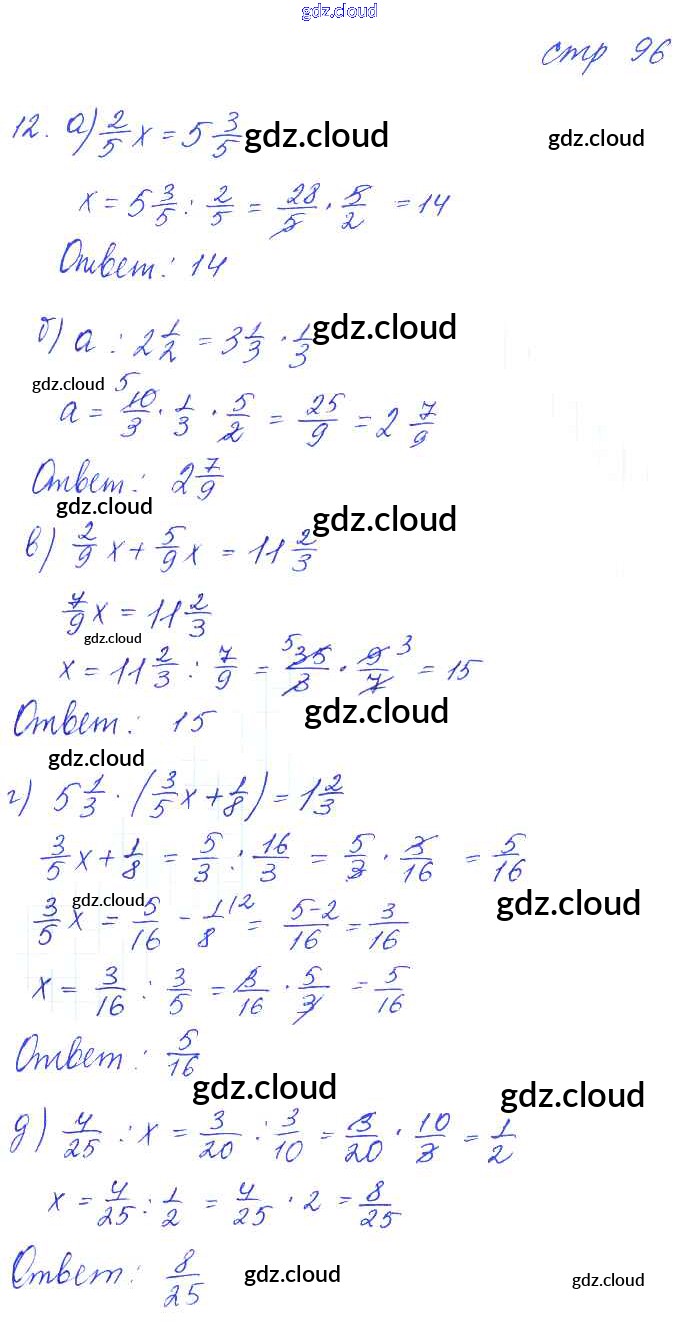 gdz.cloud
стр 96
12. а) 2/5 x = 5 3/5 gdz.cloud gdz.cloud
x = 5 3/5 : 2/5 = 28/5 · 5/2 = 14
Ответ: 14
б) a : 2 1/2 = 3 1/3 · 1/3 gdz.cloud
gdz.cloud
a = 10/3 · 1/3 · 5/2 = 25/9 = 2 7/9
5
Ответ: 2 7/9
gdz.cloud gdz.cloud
в) 2/9 x + 5/9 x = 11 2/3
7/9 x = 11 2/3
gdz.cloud
x = 11 2/3 : 7/9 = 5 35/3 · 9/7 3 = 15
Ответ: 15 gdz.cloud
gdz.cloud
г) 5 1/3 · (3/5 x + 1/8) = 1 2/3
3/5 x + 1/8 = 5/3 : 16/3 = 5/3 · 3/16 = 5/16
gdz.cloud gdz.cloud
3/5 x = 5/16 - 1/8 |2 = 5-2/16 = 3/16
x = 3/16 : 3/5 = 3/16 · 5/3 = 5/16
Ответ: 5/16
gdz.cloud gdz.cloud
д) 4/25 : x = 3/20 : 3/10 = 3/20 · 10/3 = 1/2
x = 4/25 : 1/2 = 4/25 · 2 = 8/25
Ответ: 8/25 gdz.cloud gdz.cloud